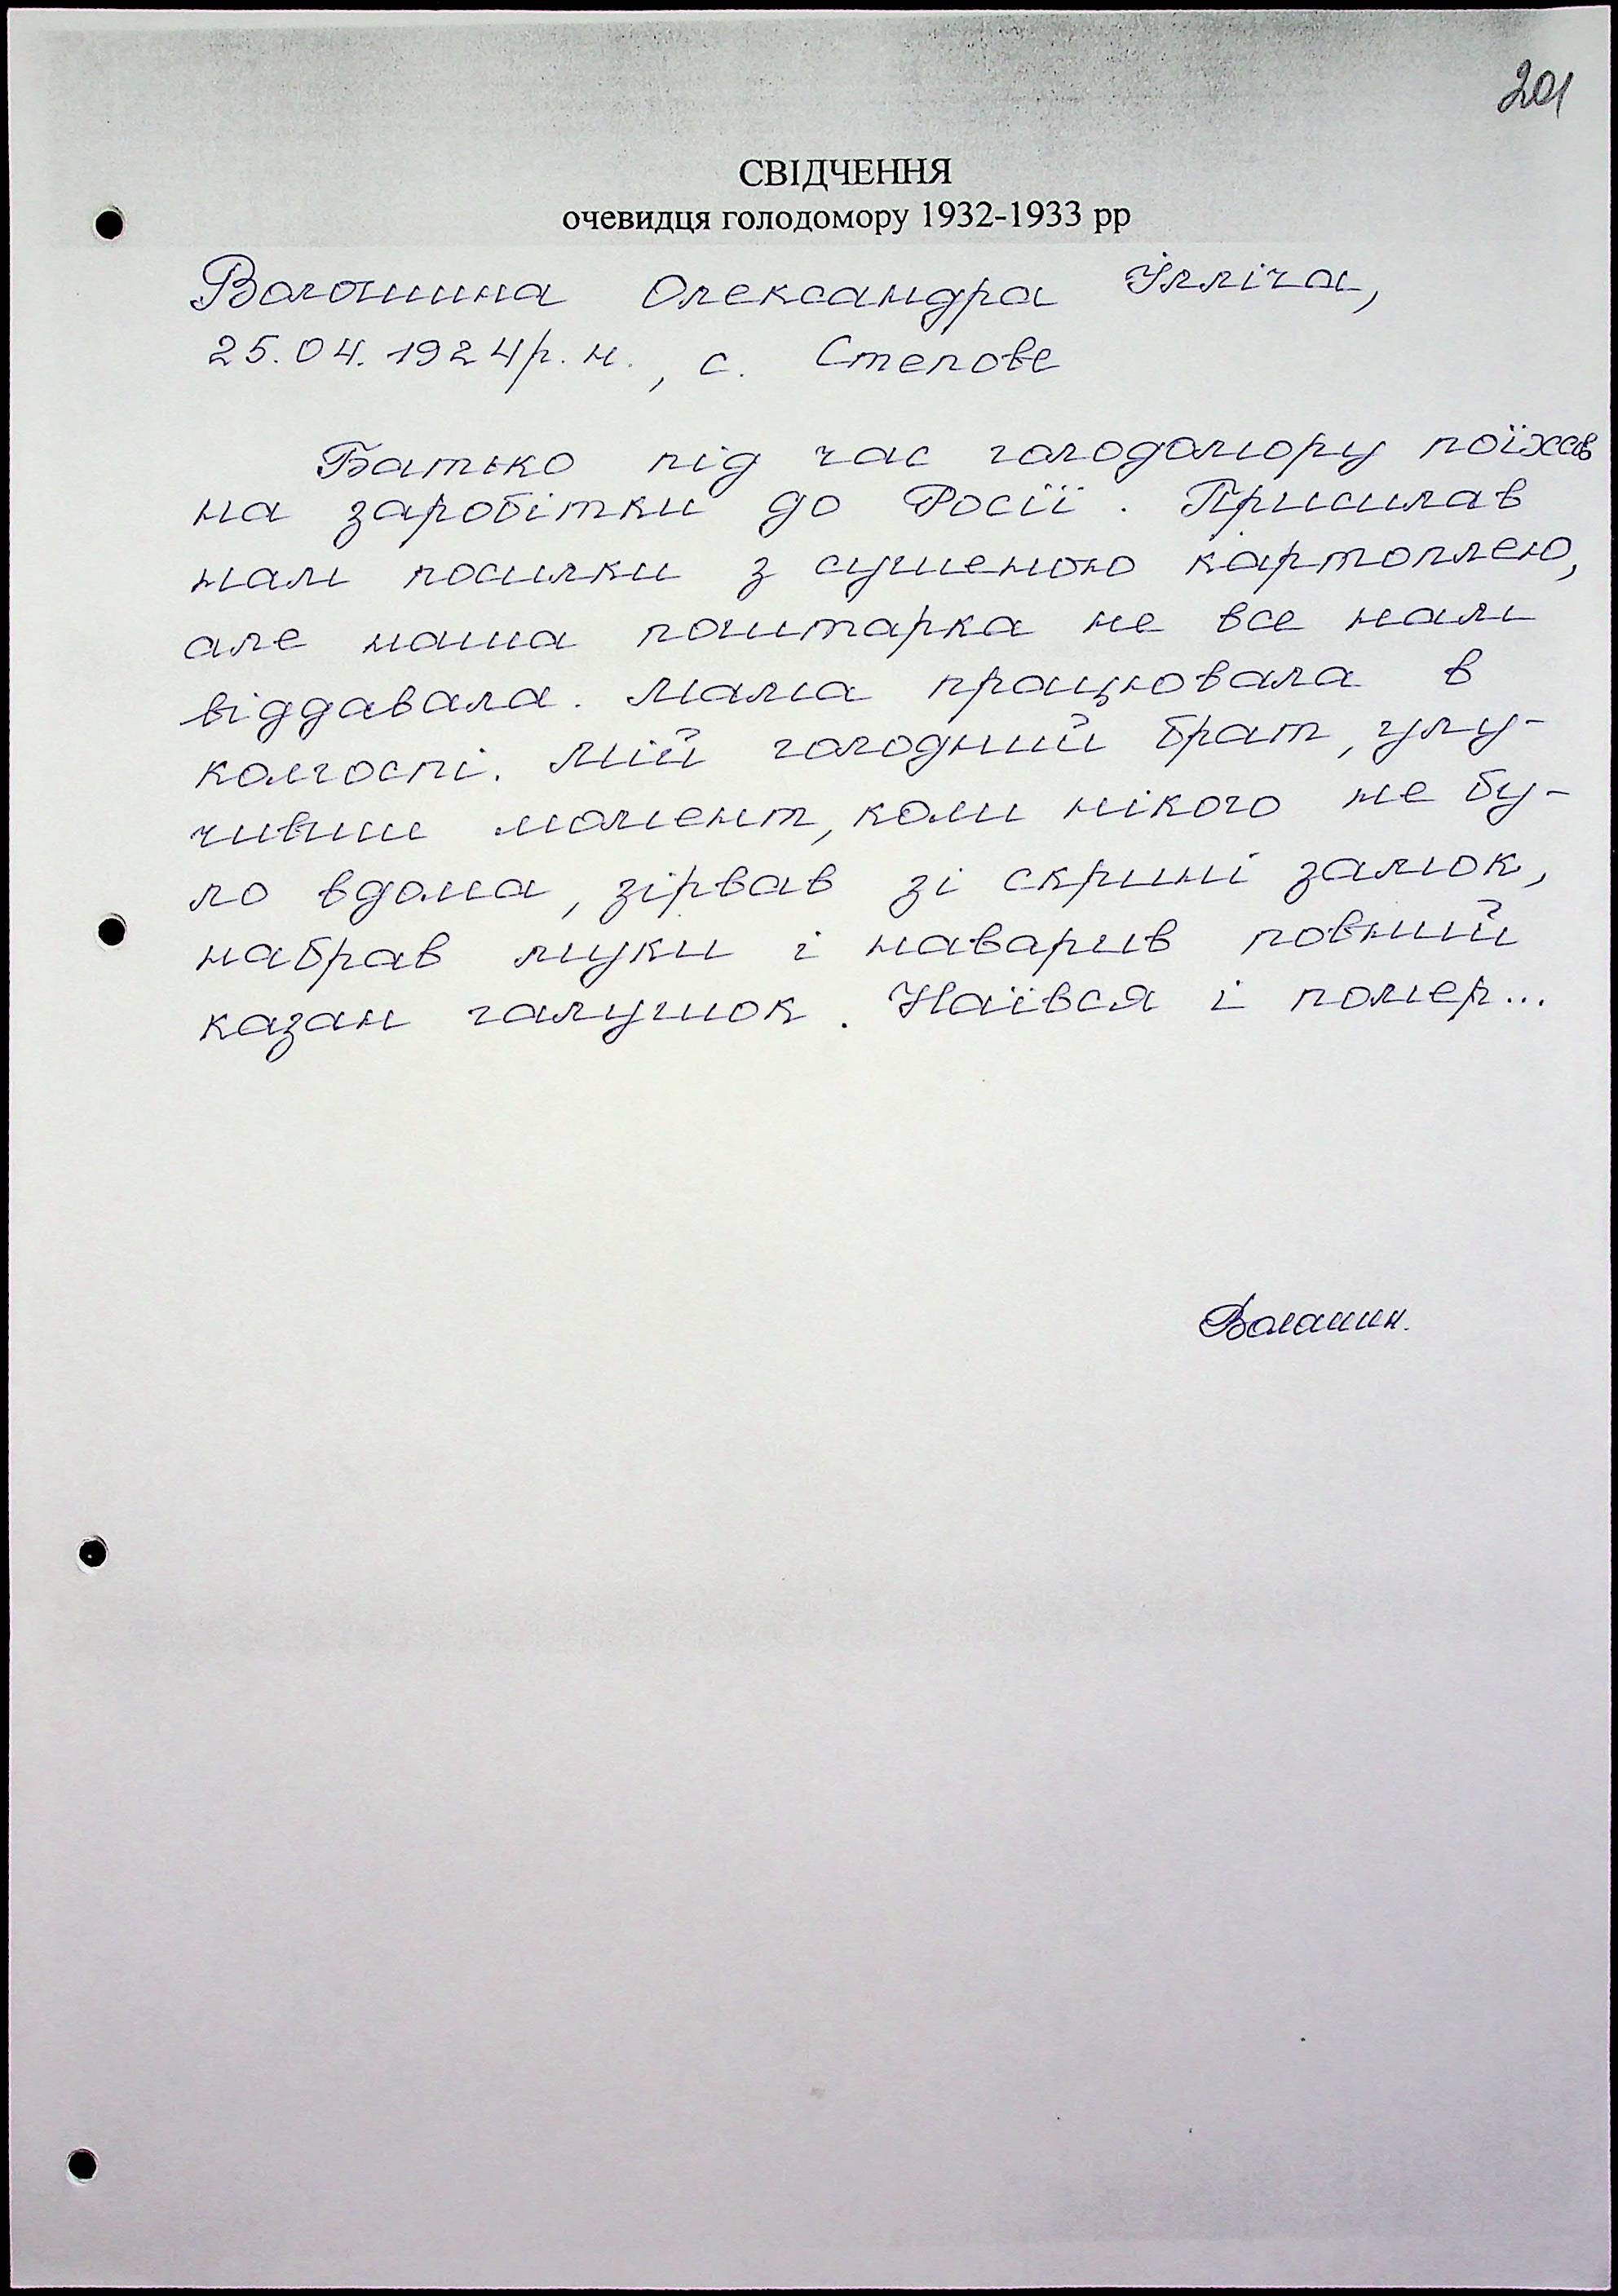 201
СВІДЧЕННЯ
очевидця голодомору 1932-1933 рр
Волошина Олександра Ілліча,
25.04.1924р.н., с. Степове
Батько під час голодомору поїхав
на заробітки до Росії. Присилав
нам посилки з сушеною картоплею,
але наша поштарка не все нам
віддавала. Мама працювала в
колгоспі. Мій голодний брат, улу-
чивши момент, коли нікого не бу-
ло вдома, зірвав зі скрині замок,
набрав муки і наварив повний
казан галушок. Наївся і помер...
Волошин.